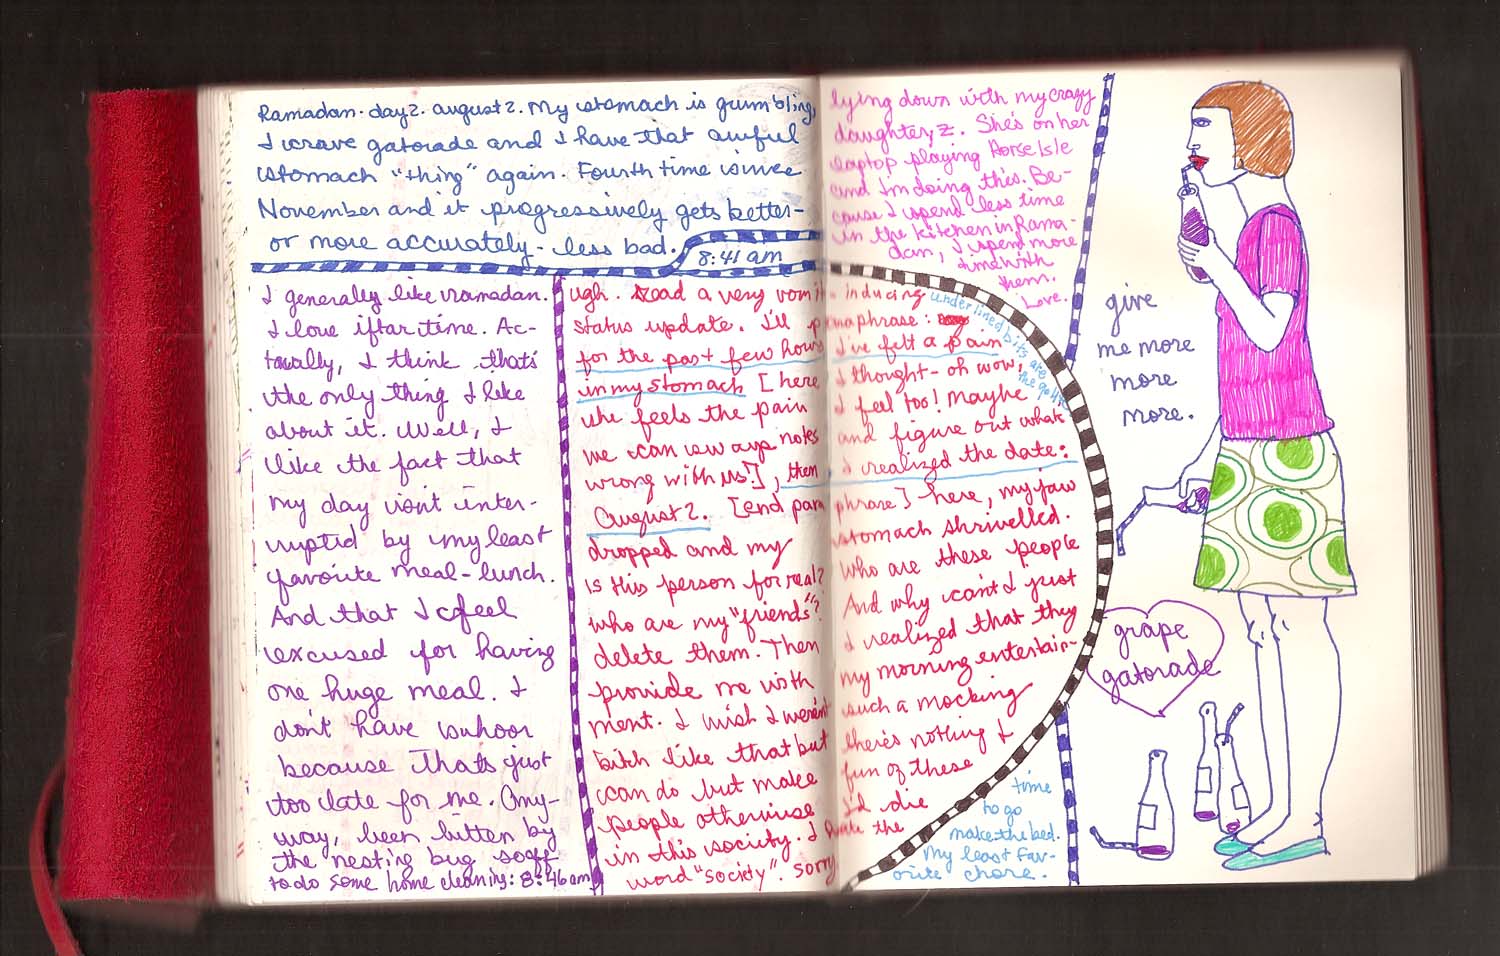 Ramadan. day 2. august 2. My stomach is grumbling,
I crave gatorade and I have that awful
stomach "thing" again. Fourth time since
November and it progressively gets better-
or more accurately - less bad.
8:41 am
I generally like ramadan.
I love iftar time. Ac-
tually, I think thats
the only thing I like
about it. Well, I
like the fact that
my day isn't inter-
rupted by my least
favorite meal - lunch.
And that I feel
excused for having
one huge meal. I
don't have suhoor
because thats just
too late for me. Any-
way, been bitten by
the nesting bug so off
to do some home cleaning: 8:46 am
ugh. Read a very vomit-inducing
status update. I'll paraphrase:
I've felt a pain
for the past few hours
in my stomach [here
I thought - oh wow,
she feels the pain
I feel too! Maybe
we can swap notes
and figure out whats
wrong with us!], then
I realized the date:
August 2. [end paraphrase] here, my jaw
dropped and my stomach shrivelled.
Is this person for real? Who are these people
who are my "friends"? And why can't I just
delete them. Then I realized that they
provide me with my morning entertain-
ment. I wish I weren't such a mocking
bitch like that but there's nothing I
can do but make fun of these
people otherwise I'd die
in this society. I hate the
word "society". sorry
underlined bits are
lying down with my crazy
daughter, Z. She's on her
laptop playing Horse Isle
and I'm doing this. Be-
cause I spend less time
in the kitchen in Rama-
dan, I spend more
time with
them.
Love.
time
to go
make the bed.
My least fav-
orite chore.
give
me more
more
more.
grape
gatorade